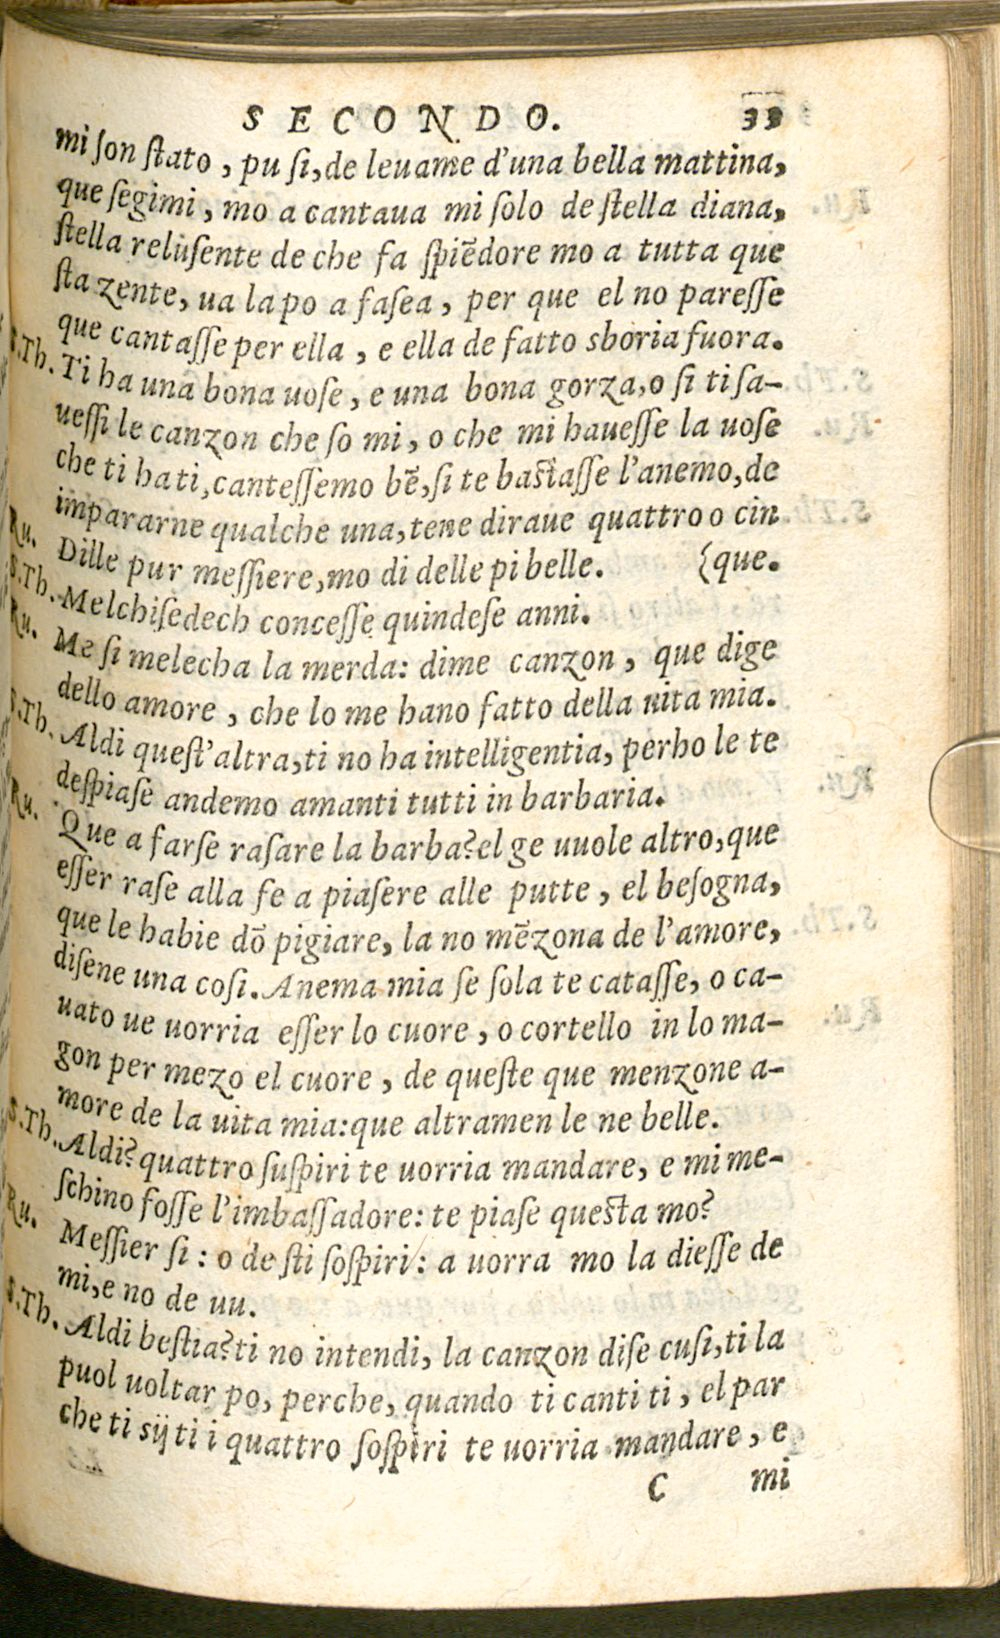 SECONDO. 33
mi ſon ſtato, pu ſi, de leuame d'una bella mattina,
que ſegimi, mo a cantaua mi ſolo de ſtella diana,
ſtella reluſente de che fa ſpiẽdore mo a tutta que
ſta zente, ua la po a faſea, per que el no pareſſe
que cantaſſe per ella, e ella de fatto sboria fuora.
S.Th. Ti ha una bona uoſe, e una bona gorza, o ſi ti ſa-
ueſſi le canzon che ſo mi, o che mi haueſſe la uoſe
che ti ha ti, canteſſemo bẽ, ſi te baſtaſſe l'anemo, de
impararne qualche una, tene diraue quattro o cin
Ru. Dille pur meſſiere, mo di delle pi belle. {que.
S.Th. Melchiſedech conceſſe quindeſe anni.
Ru. Me ſi melecha la merda: dime canzon, que dige
dello amore, che lo me hano fatto della uita mia.
S.Th. Aldi queſt'altra, ti no ha intelligentia, perho le te
deſpiaſe andemo amanti tutti in barbaria.
Ru. Que a farſe raſare la barba? el ge uuole altro, que
eſſer raſe alla fe a piaſere alle putte, el beſogna,
que le habie dõ pigiare, la no mẽzona de l'amore,
diſene una coſi. Anema mia ſe ſola te cataſſe, o ca-
uato ue uorria eſſer lo cuore, o cortello in lo ma-
gon per mezo el cuore, de queſte que menzone a-
more de la uita mia: que altramen le ne belle.
S.Th. Aldi? quattro ſuſpiri te uorria mandare, e mi me-
ſchino foſſe l'imbaſſadore: te piaſe queſta mo?
Ru. Meſſier ſi: o de ſti ſoſpiri: a uorra mo la dieſſe de
mi, e no de uu.
S.Th. Aldi beſtia? ti no intendi, la canzon diſe cuſi, ti la
puol uoltar po, perche, quando ti canti ti, el par
che ti sij ti i quattro ſoſpiri te uorria mandare, e
C mi